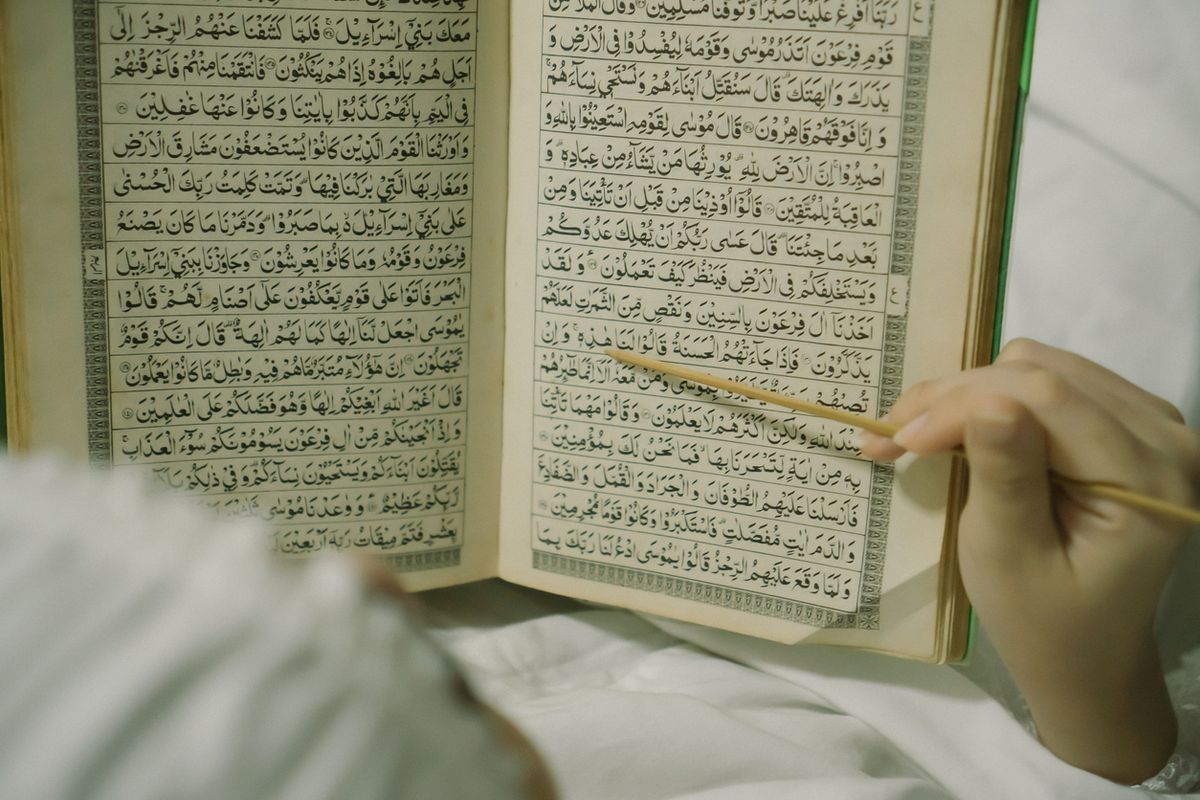 رَبَّنَا اَفْرِغْ عَلَيْنَا صَبْرًا وَّتَوَفَّنَا مُسْلِمِيْنَ ۝ وَقَالَ الْمَلَاُ مِنْ
قَوْمِ فِرْعَوْنَ اَتَذَرُ مُوْسٰى وَقَوْمَهٗ لِيُفْسِدُوْا فِى الْاَرْضِ وَ
يَذَرَكَ وَاٰلِهَتَكَ ۗ قَالَ سَنُقَتِّلُ اَبْنَآءَهُمْ وَنَسْتَحْيٖ نِسَآءَهُمْ ۚ
وَاِنَّا فَوْقَهُمْ قَاهِرُوْنَ ۝ قَالَ مُوْسٰى لِقَوْمِهِ اسْتَعِيْنُوْا بِاللهِ وَ
اصْبِرُوْا ۚ اِنَّ الْاَرْضَ لِلّٰهِ ۙ يُوْرِثُهَا مَنْ يَّشَآءُ مِنْ عِبَادِهٖ ۗ وَ
الْعَاقِبَةُ لِلْمُتَّقِيْنَ ۝ قَالُوْٓا اُوْذِيْنَا مِنْ قَبْلِ اَنْ تَاْتِيَنَا وَمِنْ
بَعْدِ مَا جِئْتَنَا ۗ قَالَ عَسٰى رَبُّكُمْ اَنْ يُّهْلِكَ عَدُوَّكُمْ
وَيَسْتَخْلِفَكُمْ فِى الْاَرْضِ فَيَنْظُرَ كَيْفَ تَعْمَلُوْنَ ۝ وَلَقَدْ
اَخَذْنَآ اٰلَ فِرْعَوْنَ بِالسِّنِيْنَ وَنَقْصٍ مِّنَ الثَّمَرٰتِ لَعَلَّهُمْ
يَذَّكَّرُوْنَ ۝ فَاِذَا جَآءَتْهُمُ الْحَسَنَةُ قَالُوْا لَنَا هٰذِهٖ ۚ وَاِنْ
تُصِبْهُمْ بِمُوْسٰى وَمَنْ مَّعَهٗ ۗ اَلَآ اِنَّمَا طٰٓئِرُهُمْ
عِنْدَ اللهِ وَلٰكِنَّ اَكْثَرَهُمْ لَا يَعْلَمُوْنَ ۝ وَقَالُوْا مَهْمَا تَاْتِنَا
بِهٖ مِنْ اٰيَةٍ لِّتَسْحَرَنَا بِهَا ۙ فَمَا نَحْنُ لَكَ بِمُؤْمِنِيْنَ ۝
فَاَرْسَلْنَا عَلَيْهِمُ الطُّوْفَانَ وَالْجَرَادَ وَالْقُمَّلَ وَالضَّفَادِعَ
وَالدَّمَ اٰيٰتٍ مُّفَصَّلٰتٍ ۗ فَاسْتَكْبَرُوْا وَكَانُوْا قَوْمًا مُّجْرِمِيْنَ ۝
وَلَمَّا وَقَعَ عَلَيْهِمُ الرِّجْزُ قَالُوْا يٰمُوْسَى ادْعُ لَنَا رَبَّكَ بِمَا
ع
ع
مَعَكَ بَنِيْٓ اِسْرَآءِيْلَ ۝ فَلَمَّا كَشَفْنَا عَنْهُمُ الرِّجْزَ اِلٰٓى
اَجَلٍ هُمْ بٰلِغُوْهُ اِذَا هُمْ يَنْكُثُوْنَ ۝ فَانْتَقَمْنَا مِنْهُمْ فَاَغْرَقْنٰهُمْ
فِى الْيَمِّ بِاَنَّهُمْ كَذَّبُوْا بِاٰيٰتِنَا وَكَانُوْا عَنْهَا غٰفِلِيْنَ ۝
وَاَوْرَثْنَا الْقَوْمَ الَّذِيْنَ كَانُوْا يُسْتَضْعَفُوْنَ مَشَارِقَ الْاَرْضِ
وَمَغَارِبَهَا الَّتِيْ بٰرَكْنَا فِيْهَا ۗ وَتَمَّتْ كَلِمَتُ رَبِّكَ الْحُسْنٰى
عَلٰى بَنِيْٓ اِسْرَآءِيْلَ ۙ بِمَا صَبَرُوْا ۗ وَدَمَّرْنَا مَا كَانَ يَصْنَعُ
فِرْعَوْنُ وَقَوْمُهٗ وَمَا كَانُوْا يَعْرِشُوْنَ ۝ وَجَاوَزْنَا بِبَنِيْٓ اِسْرَآءِيْلَ
الْبَحْرَ فَاَتَوْا عَلٰى قَوْمٍ يَّعْكُفُوْنَ عَلٰٓى اَصْنَامٍ لَّهُمْ ۚ قَالُوْا
يٰمُوْسَى اجْعَلْ لَّنَآ اِلٰهًا كَمَا لَهُمْ اٰلِهَةٌ ۗ قَالَ اِنَّكُمْ قَوْمٌ
تَجْهَلُوْنَ ۝ اِنَّ هٰٓؤُلَآءِ مُتَبَّرٌ مَّا هُمْ فِيْهِ وَبٰطِلٌ مَّا كَانُوْا يَعْمَلُوْنَ ۝
قَالَ اَغَيْرَ اللهِ اَبْغِيْكُمْ اِلٰهًا وَّهُوَ فَضَّلَكُمْ عَلَى الْعٰلَمِيْنَ ۝
وَاِذْ اَنْجَيْنٰكُمْ مِّنْ اٰلِ فِرْعَوْنَ يَسُوْمُوْنَكُمْ سُوْٓءَ الْعَذَابِ ۚ
يُقَتِّلُوْنَ اَبْنَآءَكُمْ وَيَسْتَحْيُوْنَ نِسَآءَكُمْ ۗ وَفِيْ ذٰلِكُمْ بَلَآءٌ
رَّبِّكُمْ عَظِيْمٌ ۝ وَوٰعَدْنَا مُوْسٰى ثَلٰثِيْنَ
بِعَشْرٍ فَتَمَّ مِيْقَاتُ رَبِّهٖٓ اَرْبَعِيْنَ